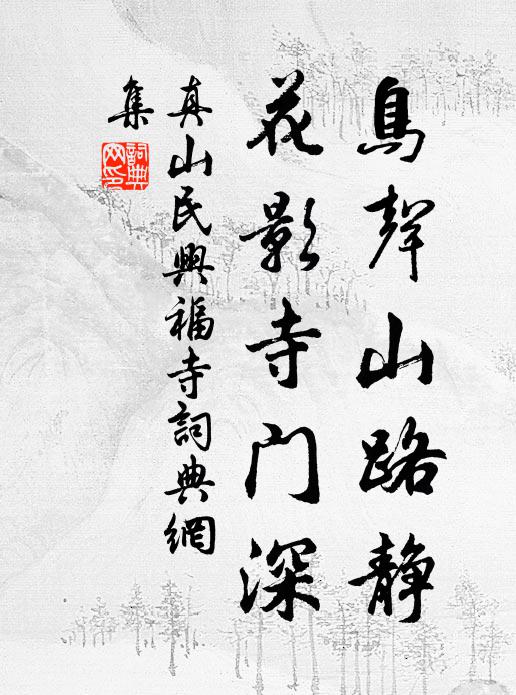 鳥聲山路靜
花影寺门深
真山民興福寺詞典網
集
詞典网印